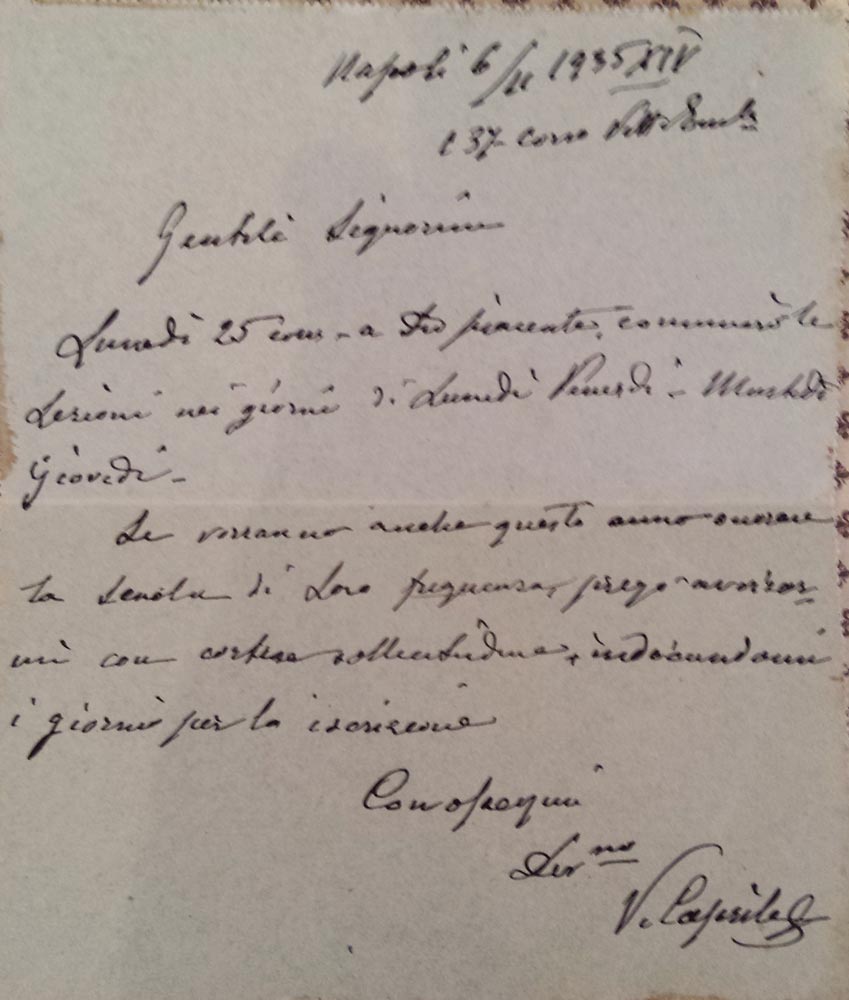 Napoli 6/11 1935 XIV
137 corso Vitt. Eman.le
Gentili Signorine
Lunedì 25 corr. - a Dio piacente, comincerò le
Lezioni nei giorni di Lunedì Venerdì - Martedì
Giovedì -
Se vorranno anche questo anno onorare
la scuola di Loro frequenza, prego avvisar
mi con cortese sollecitudine, indicandomi
i giorni per la iscrizione
Con ossequii
Dev.mo
V. Caprile